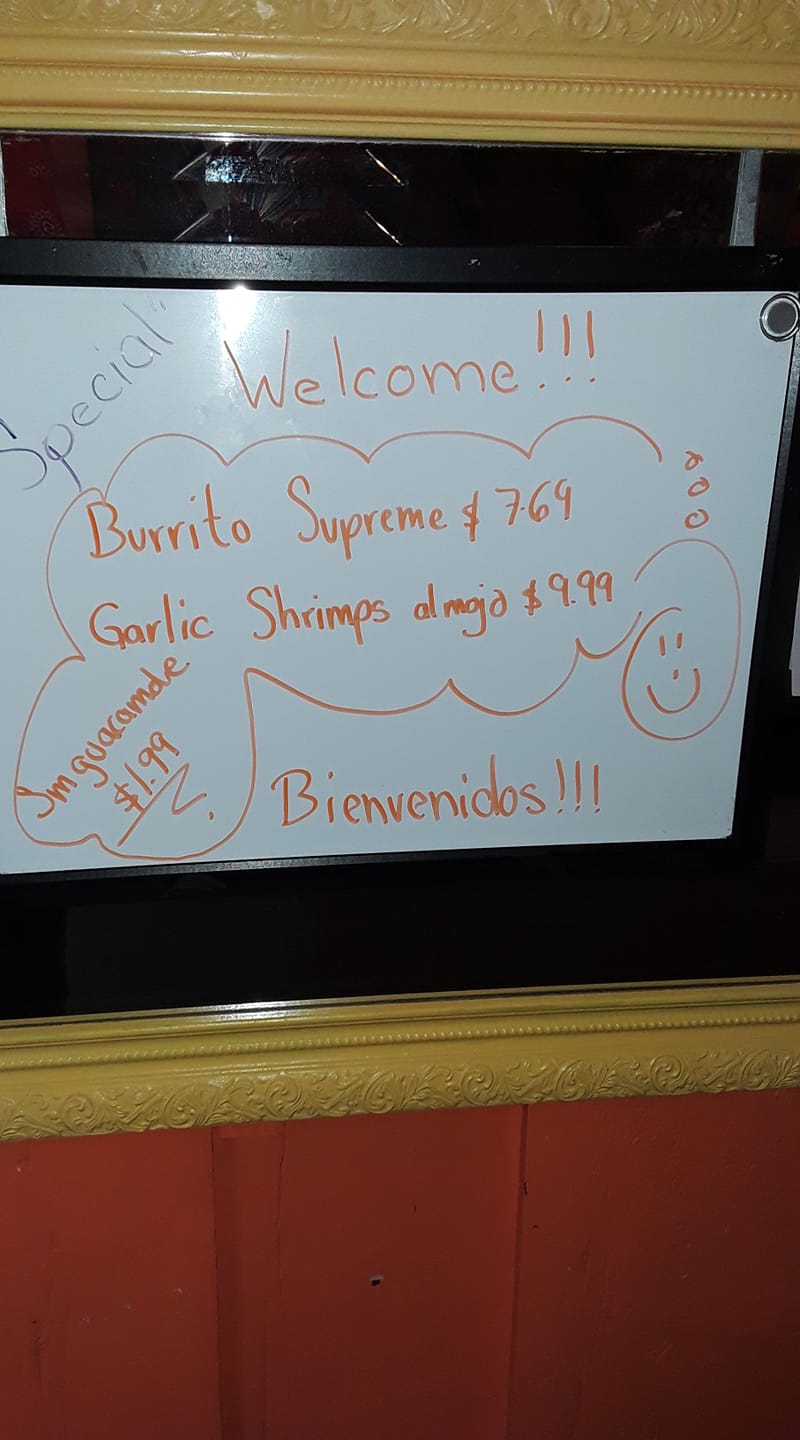 Special"
Welcome!!!
Burrito Supreme $7.69
Garlic Shrimps al mojo $9.99
Sm guacamole
$1.99
Bienvenidos!!!